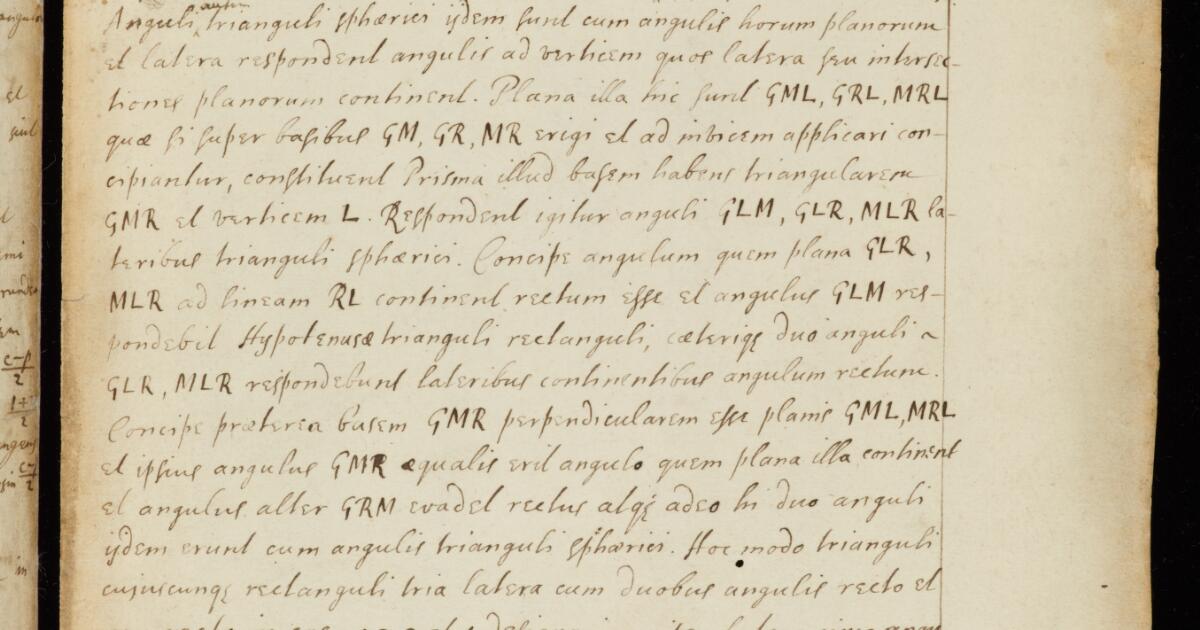 Anguli autem trianguli sphærici ijdem sunt cum angulis horum planorum
et latera respondent angulis ad verticem quos latera seu intersec-
tiones planorum continent. Plana illa hic sunt GML, GRL, MRL
quæ si super basibus GM, GR, MR erigi et ad invicem applicari con-
cipiantur, constituent Prisma illud basem habens triangularem
GMR et verticem L. Respondent igitur anguli GLM, GLR, MLR la-
teribus trianguli sphærici. Concipe angulum quem plana GLR,
MLR ad lineam RL continent rectum esse et angulus GLM res-
pondebit Hypotenusæ trianguli rectanguli, cæteriqꝫ duo anguli ~
GLR, MLR respondebunt lateribus continentibus angulum rectum.
Concipe præterea basem GMR perpendicularem esse planis GML, MRL
et ipsius angulus GMR æqualis erit angulo quem plana illa continent
et angulus alter GRM evadet rectus atqꝫ adeo hi duo anguli
ijdem erunt cum angulis trianguli sphærici. Hoc modo trianguli
cujuscunqꝫ rectanguli tria latera cum duobus angulis recto et